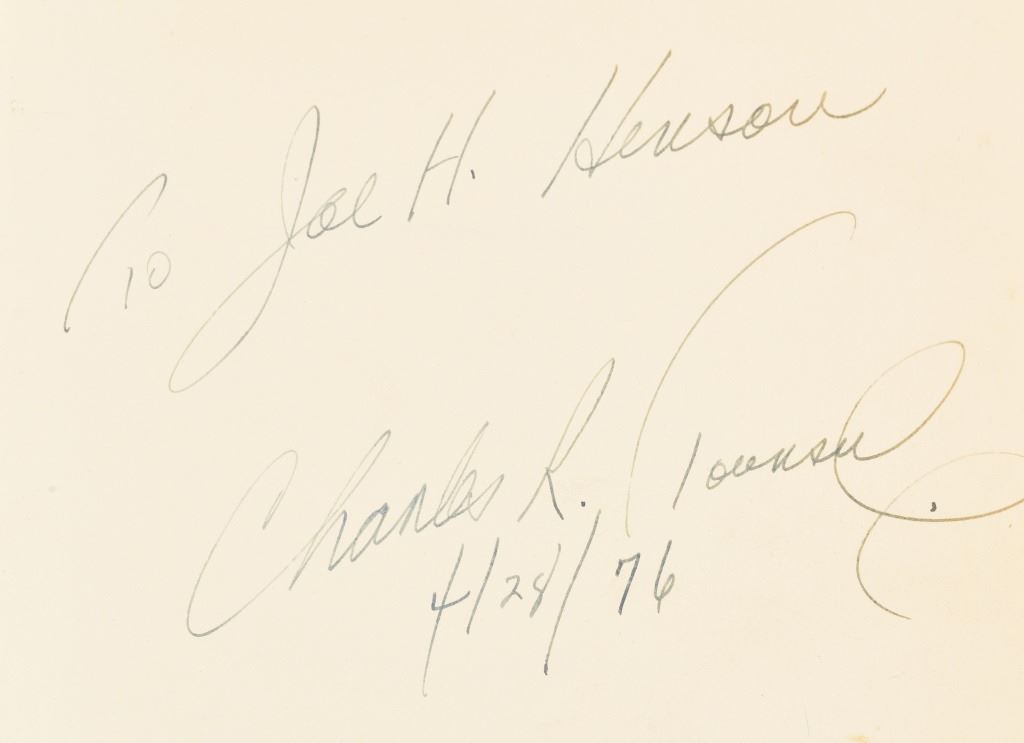 To Joe H. Henson
Charles R. Townsend
4/28/76